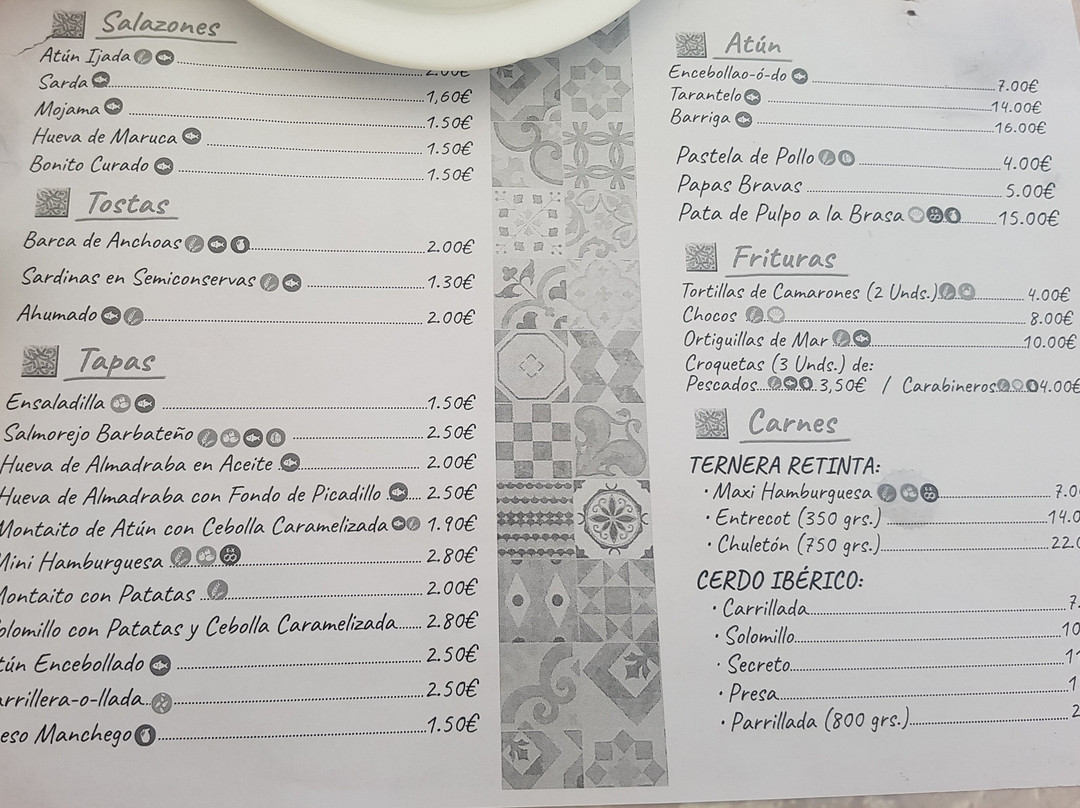 Salazones
Atún Ijada
Sarda 1,60€
Mojama 1.50€
Hueva de Maruca 1.50€
Bonito Curado 1.50€
Tostas
Barca de Anchoas 2.00€
Sardinas en Semiconservas 1.30€
Ahumado 2.00€
Tapas
Ensaladilla 1.50€
Salmorejo Barbateño 2.50€
Hueva de Almadraba en Aceite 2.00€
Hueva de Almadraba con Fondo de Picadillo 2.50€
Montaito de Atún con Cebolla Caramelizada 1.90€
Mini Hamburguesa 2.80€
Montaito con Patatas 2.00€
olomillo con Patatas y Cebolla Caramelizada 2.80€
tún Encebollado 2.50€
arrillera-o-llada 2.50€
eso Manchego 1.50€
Atún
Encebollao-ó-do 7.00€
Tarantelo 14.00€
Barriga 16.00€
Pastela de Pollo 4.00€
Papas Bravas 5.00€
Pata de Pulpo a la Brasa 15.00€
Frituras
Tortillas de Camarones (2 Unds.) 4.00€
Chocos 8.00€
Ortiguillas de Mar 10.00€
Croquetas (3 Unds.) de:
Pescados 3,50€ / Carabineros 4.00€
Carnes
TERNERA RETINTA:
· Maxi Hamburguesa 7.0
· Entrecot (350 grs.) 14.0
· Chuletón (750 grs.) 22.0
CERDO IBÉRICO:
· Carrillada 7.
· Solomillo 10
· Secreto 1
· Presa 1
· Parrillada (800 grs.) 2